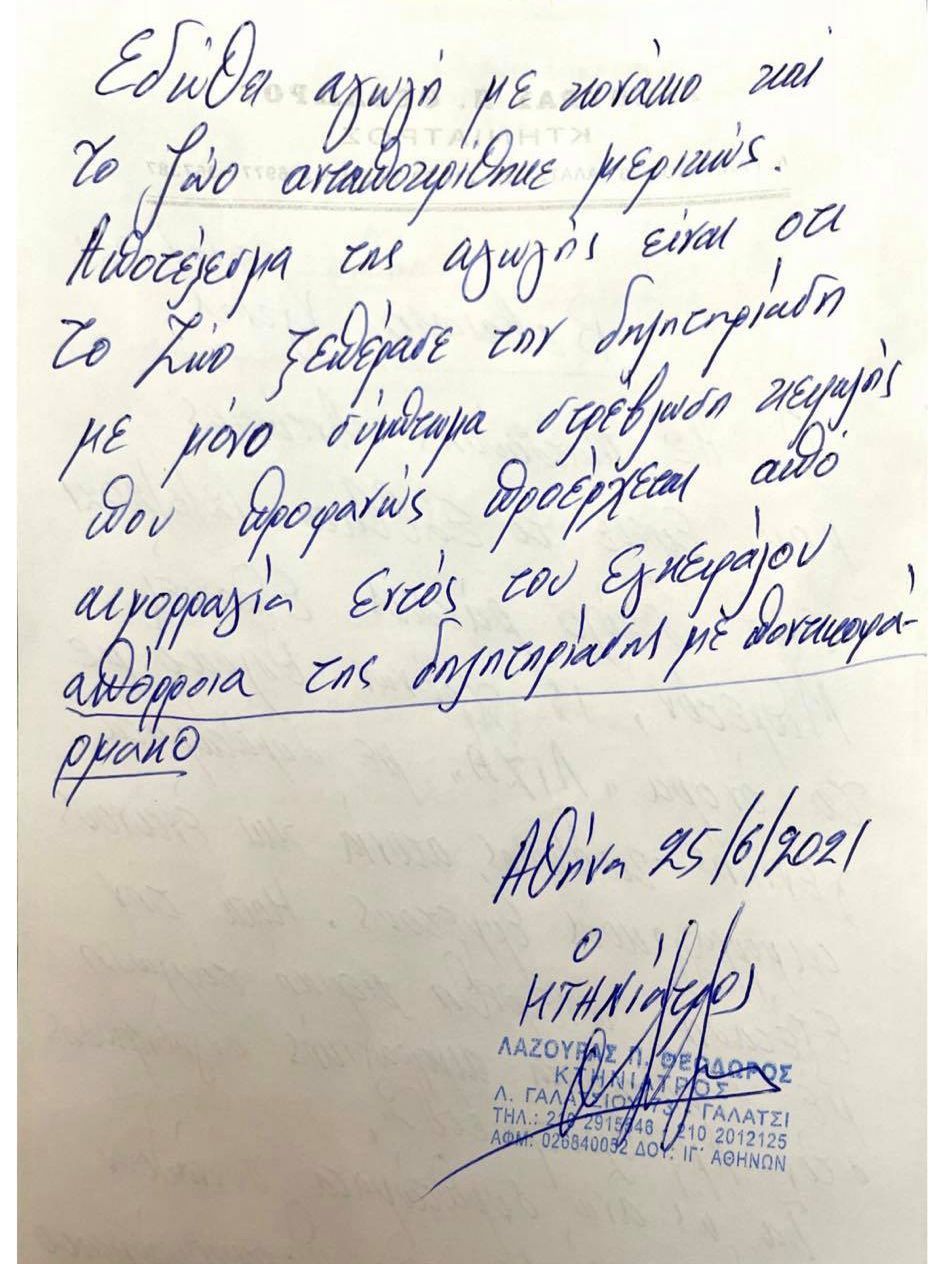 Εδώθει αγωγή με κονάκιο και
το ζώο ανταποκρίθηκε μερικώς.
Αποτέλεσμα της αγωγής είναι οτι
το Ζώο ξεπέρασε την δηλητηρίαση
με μόνο σύμπτωμα στρέβλωση κεφαλής
που προφανώς προέρχεται από
αιμορραγία εντός του Εγκεφάλου
απόρροια της δηλητηρίασης με ποντικοφά-
ρμακο
Αθήνα 25/6/2021
Ο
ΚΤΗΝίατρος
ΛΑΖΟΥΡΑΣ Π. ΘΕΟΔΩΡΟΣ
ΚΤΗΝΙΑΤΡΟΣ
Λ. ΓΑΛΑΤΣΙΟΥ 73 - ΓΑΛΑΤΣΙ
ΤΗΛ.: 210 2915646 210 2012125
ΑΦΜ: 026840052 ΔΟΥ: ΙΓ' ΑΘΗΝΩΝ